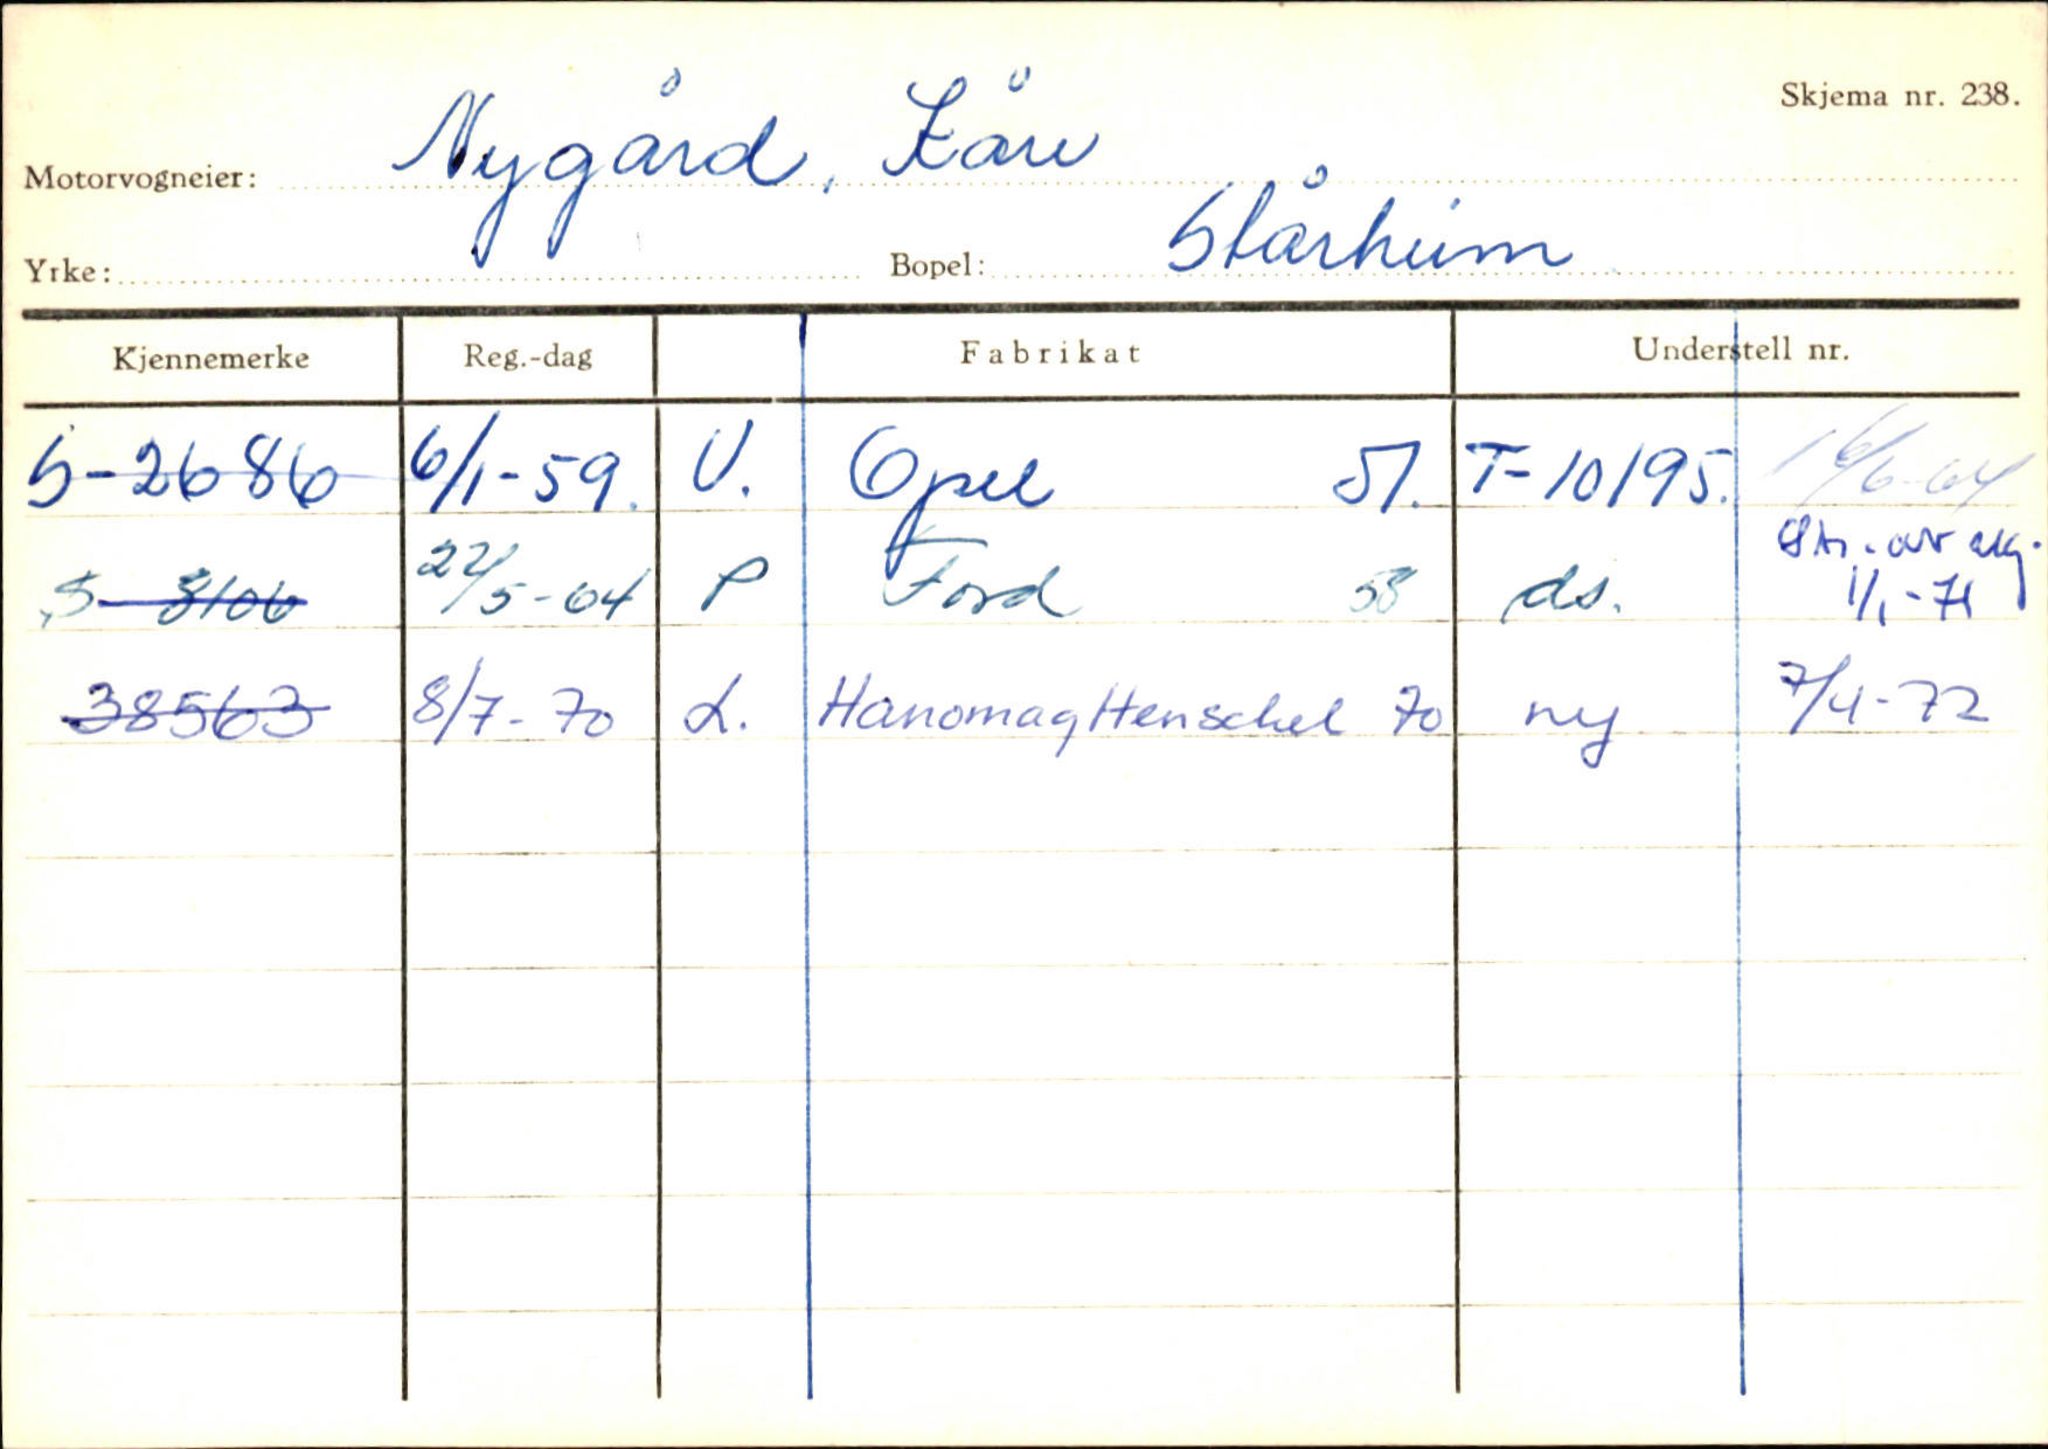 Skjema nr. 238.
Motorvogneier: Nygård, Kåre
Yrke: Bopel: Stårheim
Kjennemerke Reg.-dag Fabrikat Understell nr.
S-2686 6/1-59. V. Opel 51. T-10195. 16/6-64
S-8106 22/5-64 P Ford 58 ds. Str. av eig. 1/1-71
38563 8/7-70 L. Hanomag Henschel 70 ny 7/4-72